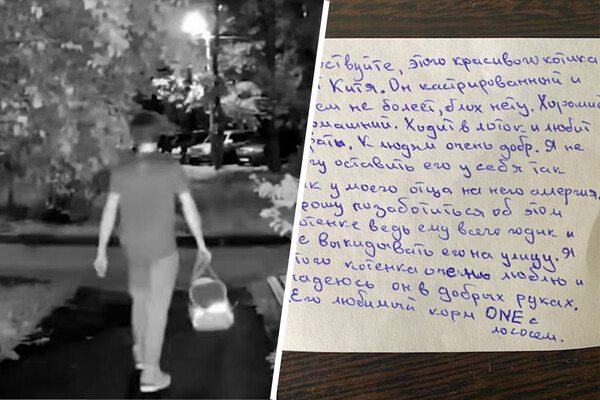 ствуйте, этого красивого котика
т Китя. Он кастрированный и
ем не болеет, блох нету. Хороший
машний. Ходит в лоток и любит
рать. К людям очень добр. Я не
гу оставить его у себя так
к у моего отца на него алергия.
рошу позаботиться об этом
отенке ведь ему всего годик и
е выкидывать его на улицу. Я
того котенка очень люблю и
адеюсь он в добрых руках.
Его любимый корм ONE с
лососем.